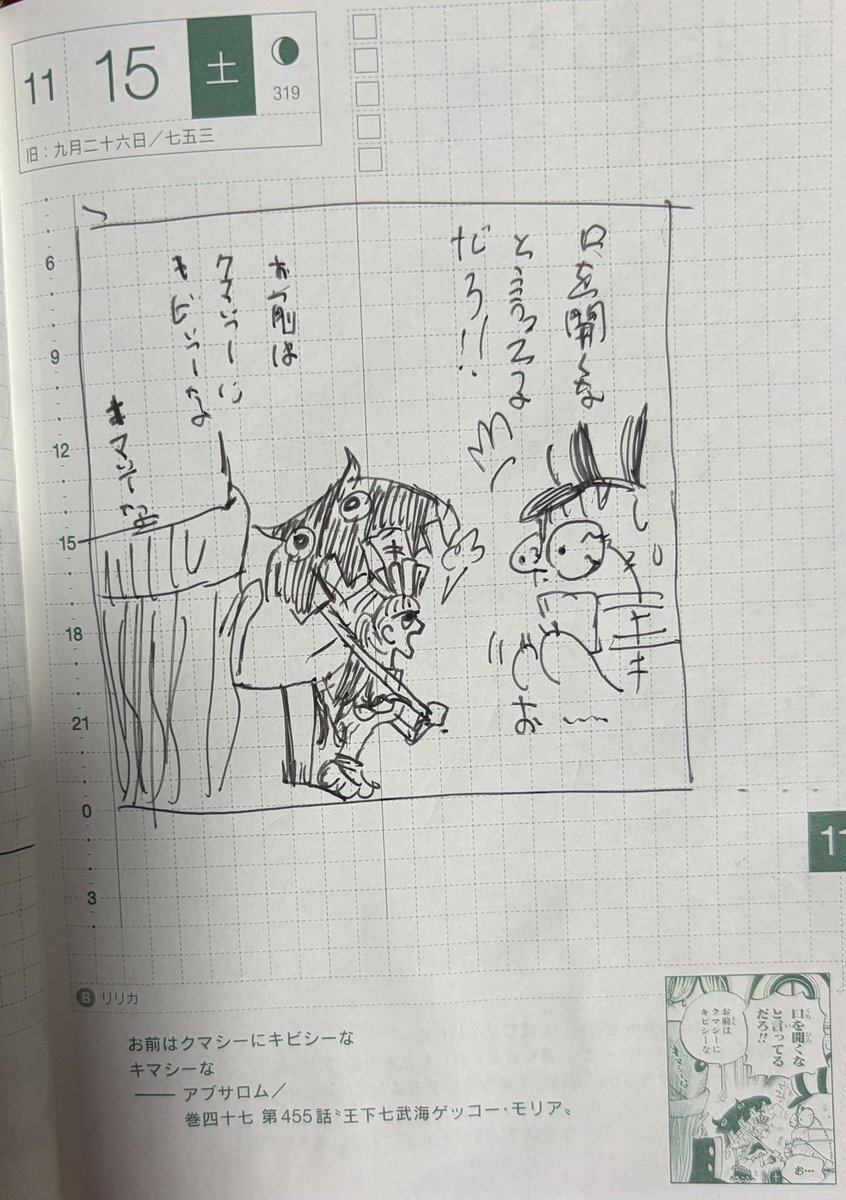 11 15 土
319
旧：九月二十六日／七五三
口を開くな
と言ってる
だろ!!
お前は
クマシーに
キビシーな
キマシーな
お
6
9
12
15
18
21
0
3
11
B リリカ
お前はクマシーにキビシーな
キマシーな
―― アブサロム／
巻四十七 第455話〝王下七武海ゲッコー・モリア〟
口を開くな
と言ってる
だろ!!
お前は
クマシーに
キビシーな
キマシーな
お…